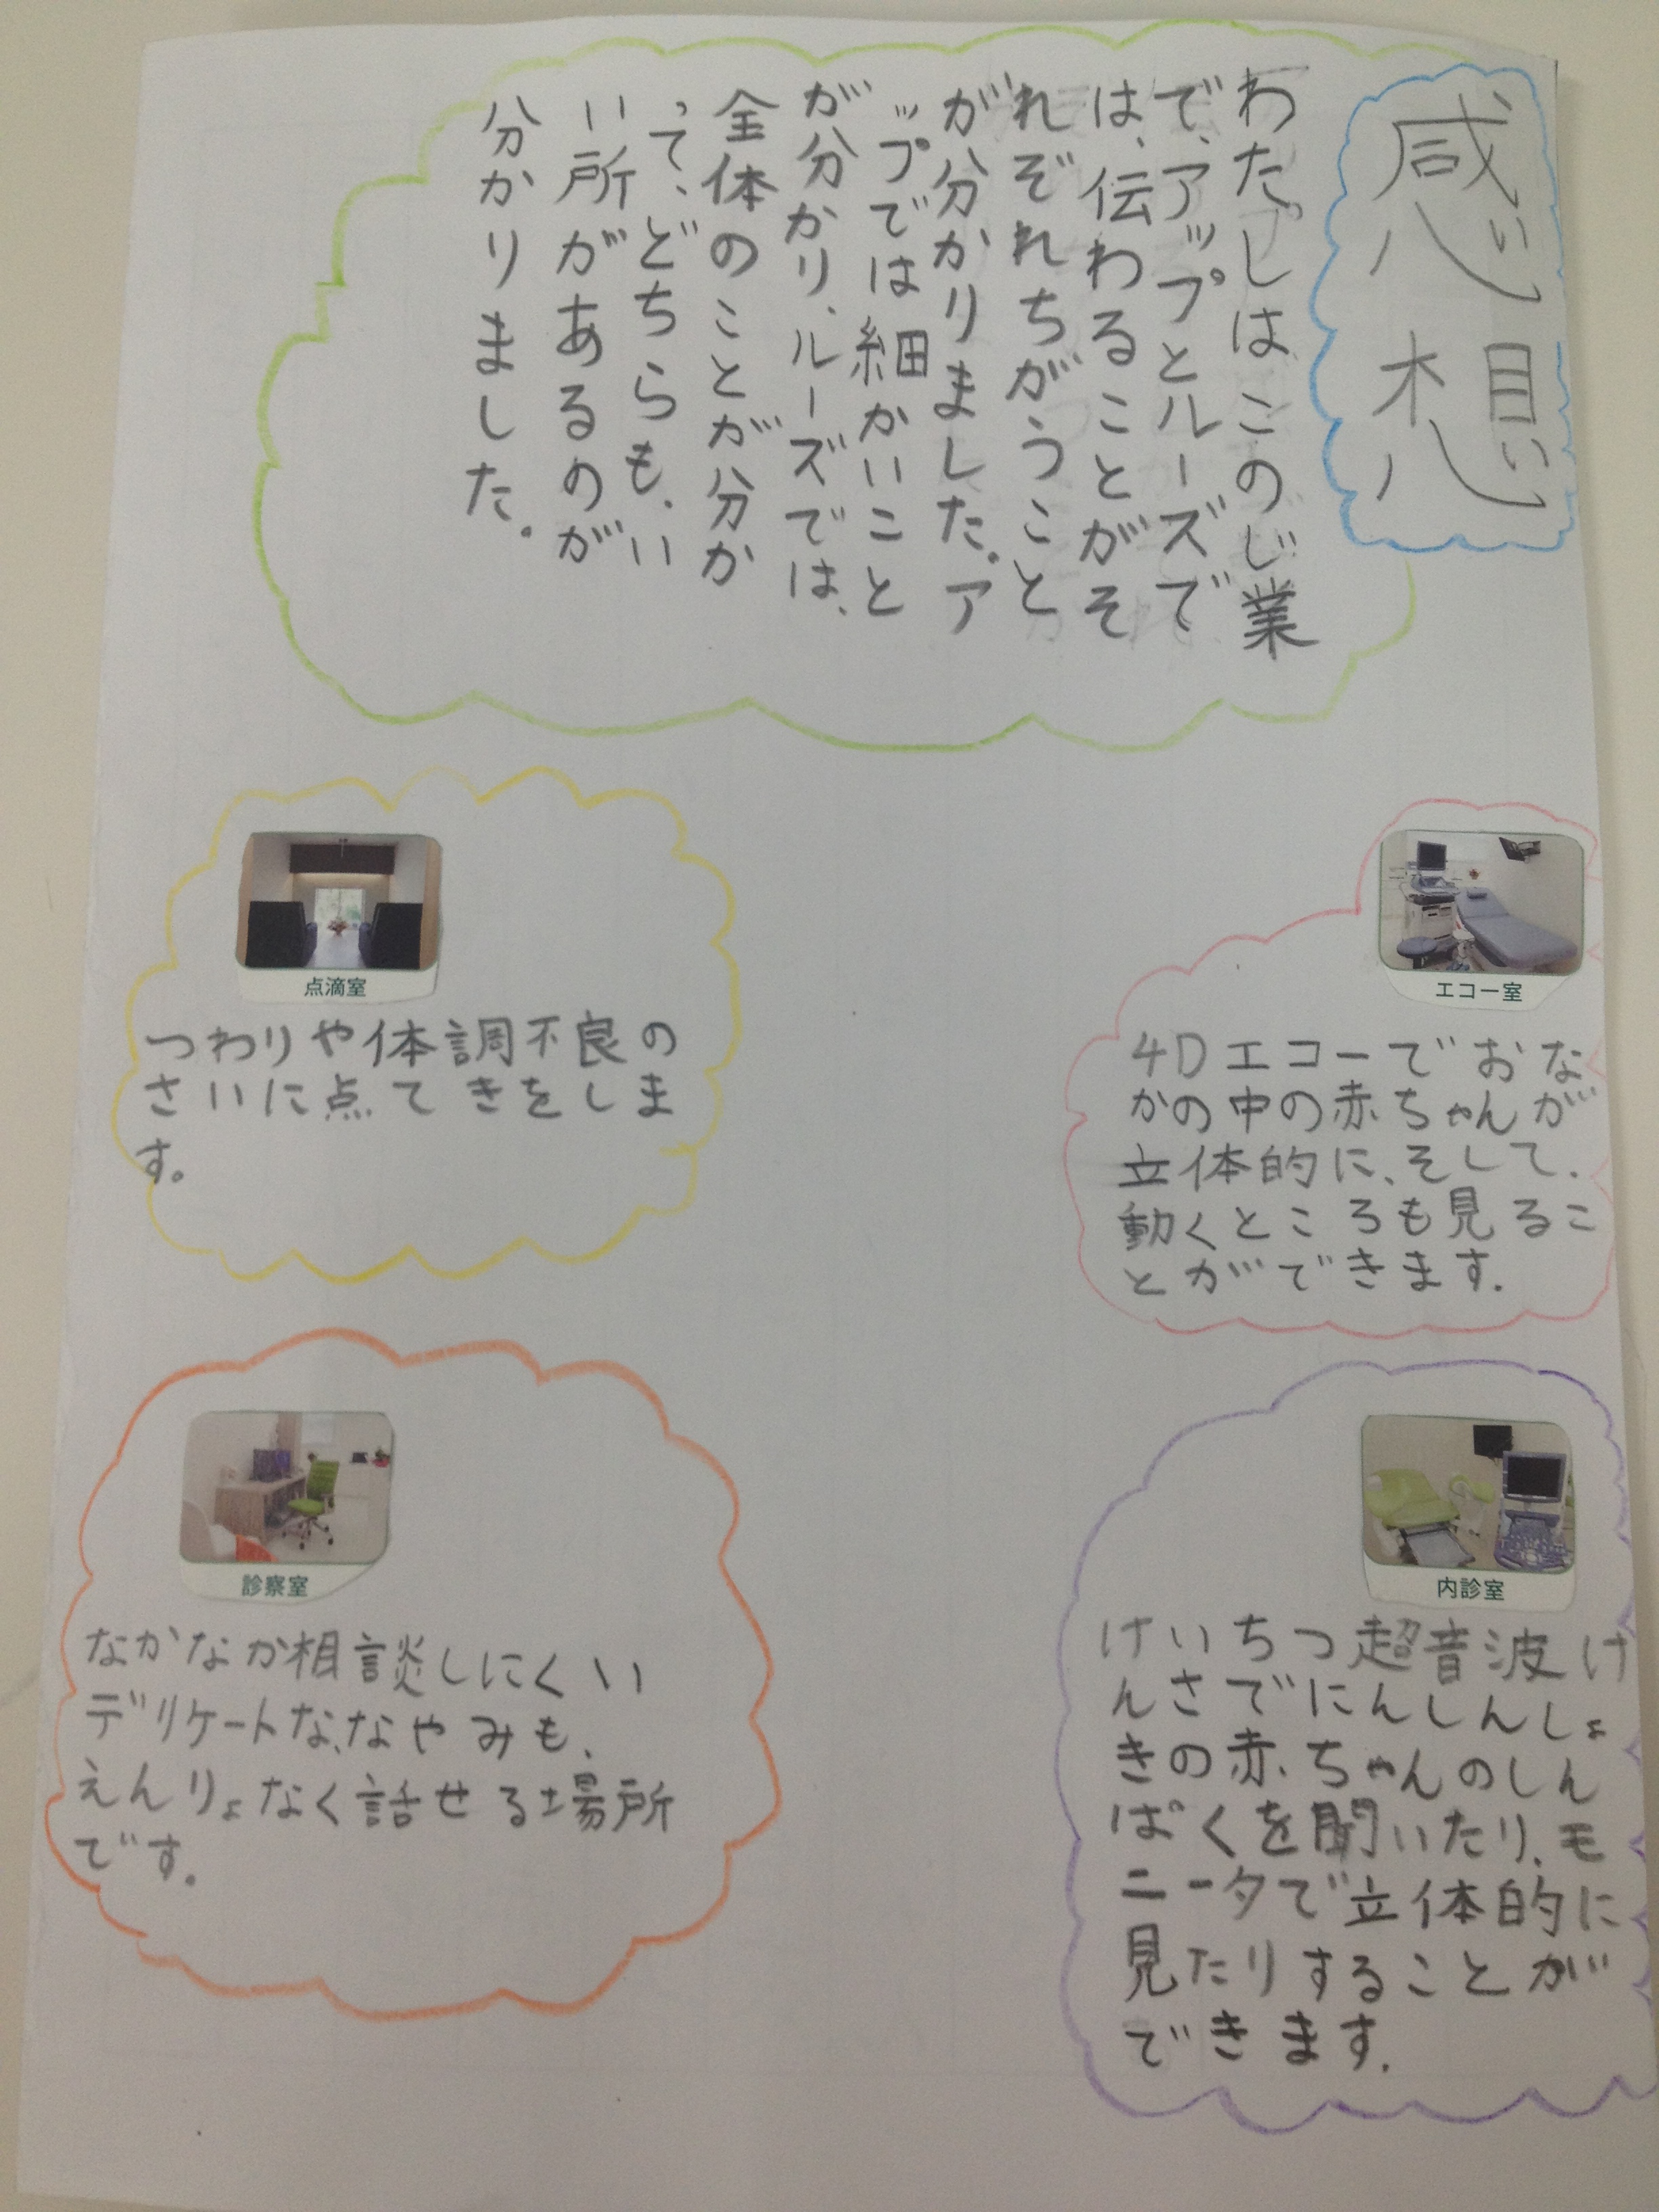 感想
わたしはこのじ業
で、アップとルーズで
は、伝わることがそ
れぞれちがうこと
が分かりました。ア
ップでは細かいこと
が分かり、ルーズでは、
全体のことが分か
って、どちらも、い
い所があるのが
分かりました。
エコー室
4Dエコーでおな
かの中の赤ちゃんが
立体的に、そして、
動くところも見るこ
とができます。
点滴室
つわりや体調不良の
さいに点てきをしま
す。
内診室
けいちつ超音波け
んさでにんしんしょ
きの赤ちゃんのしん
ぱくを聞いたり、モ
ニータで立体的に
見たりすることが
できます。
診察室
なかなか相談しにくい
デリケートな、なやみも、
えんりょなく話せる場所
です。